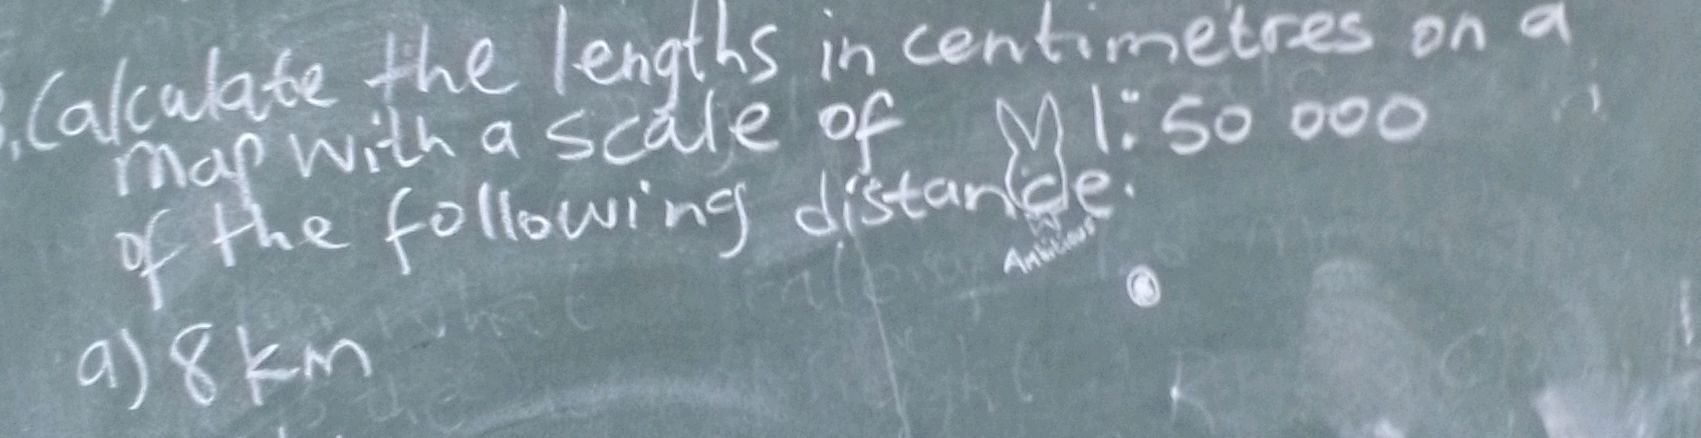 Calculate the lengths in centimetres on a
map with a scale of 1:50 000
of the following distance.
Ambitious
a) 8km